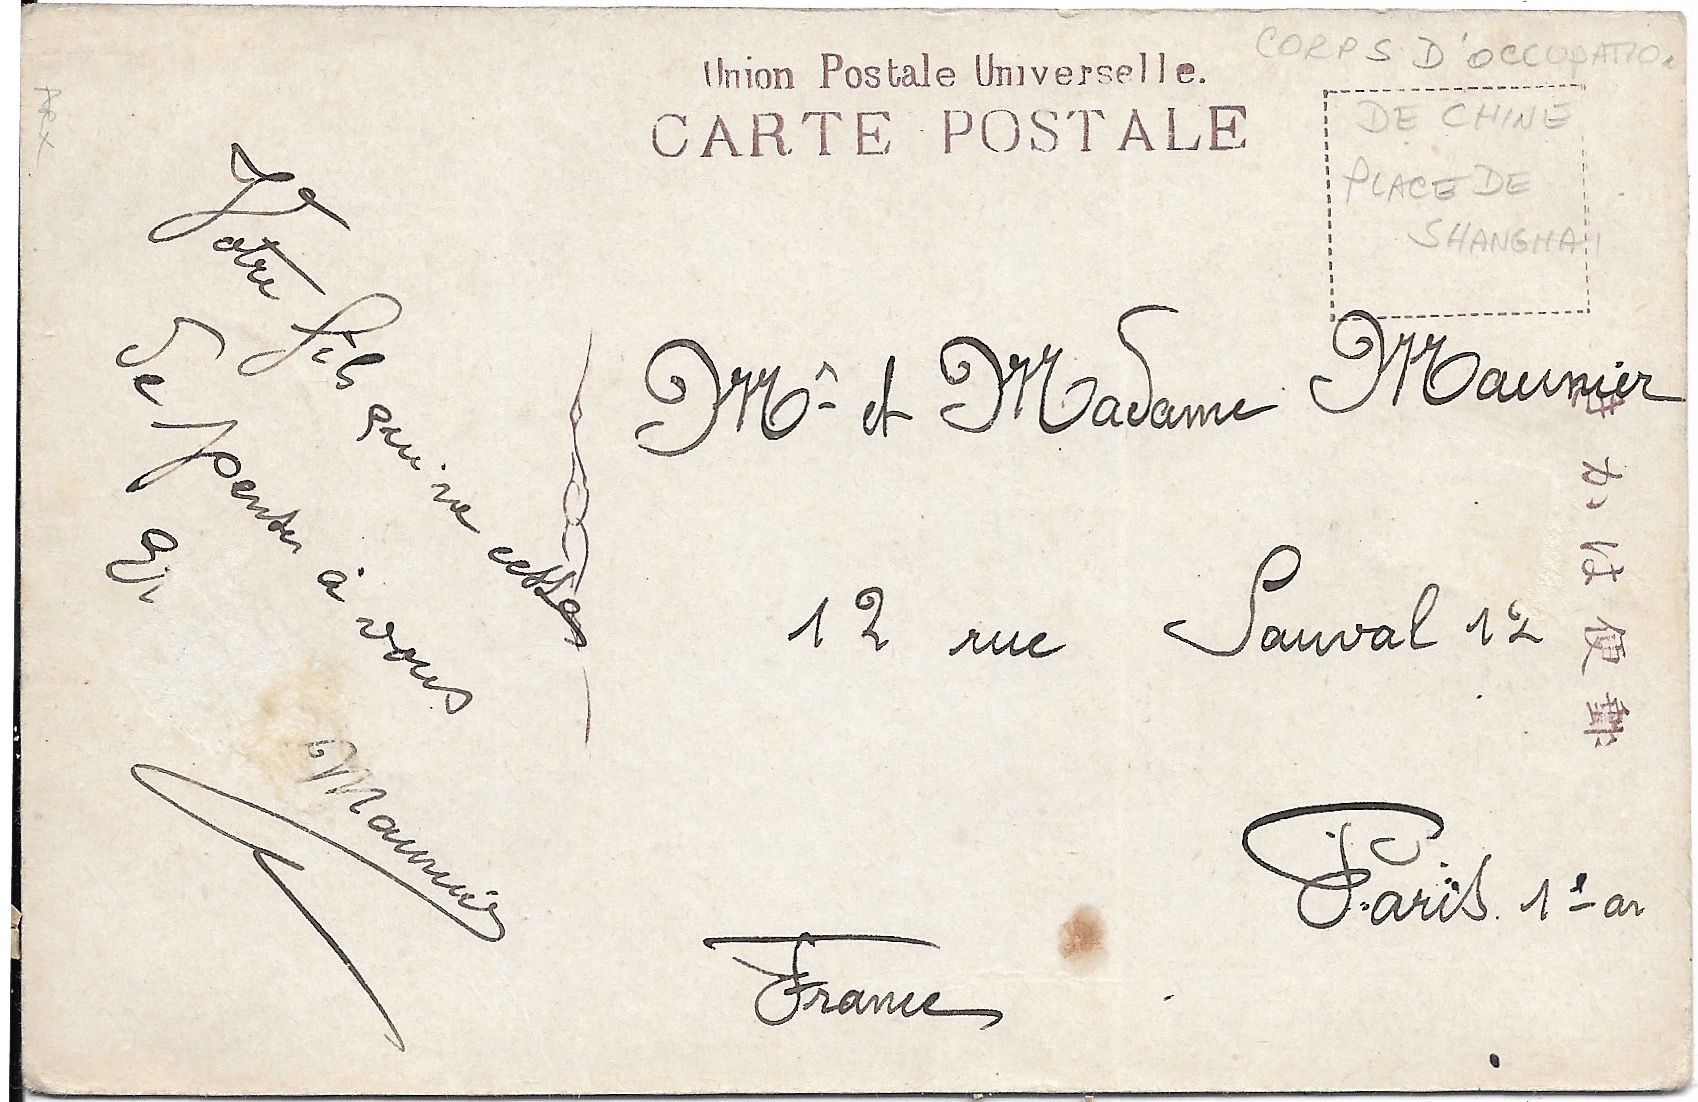 Union Postale Universelle.
CARTE POSTALE
CORPS D'OCCUPATIO
DE CHINE
PLACE DE
SHANGHAI
Votre fils qui ne cesse
de penser à vous
Maunier
Mr et Madame Maunier
12 rue Sauval 12
Paris. 1er ar
France
郵便はがき